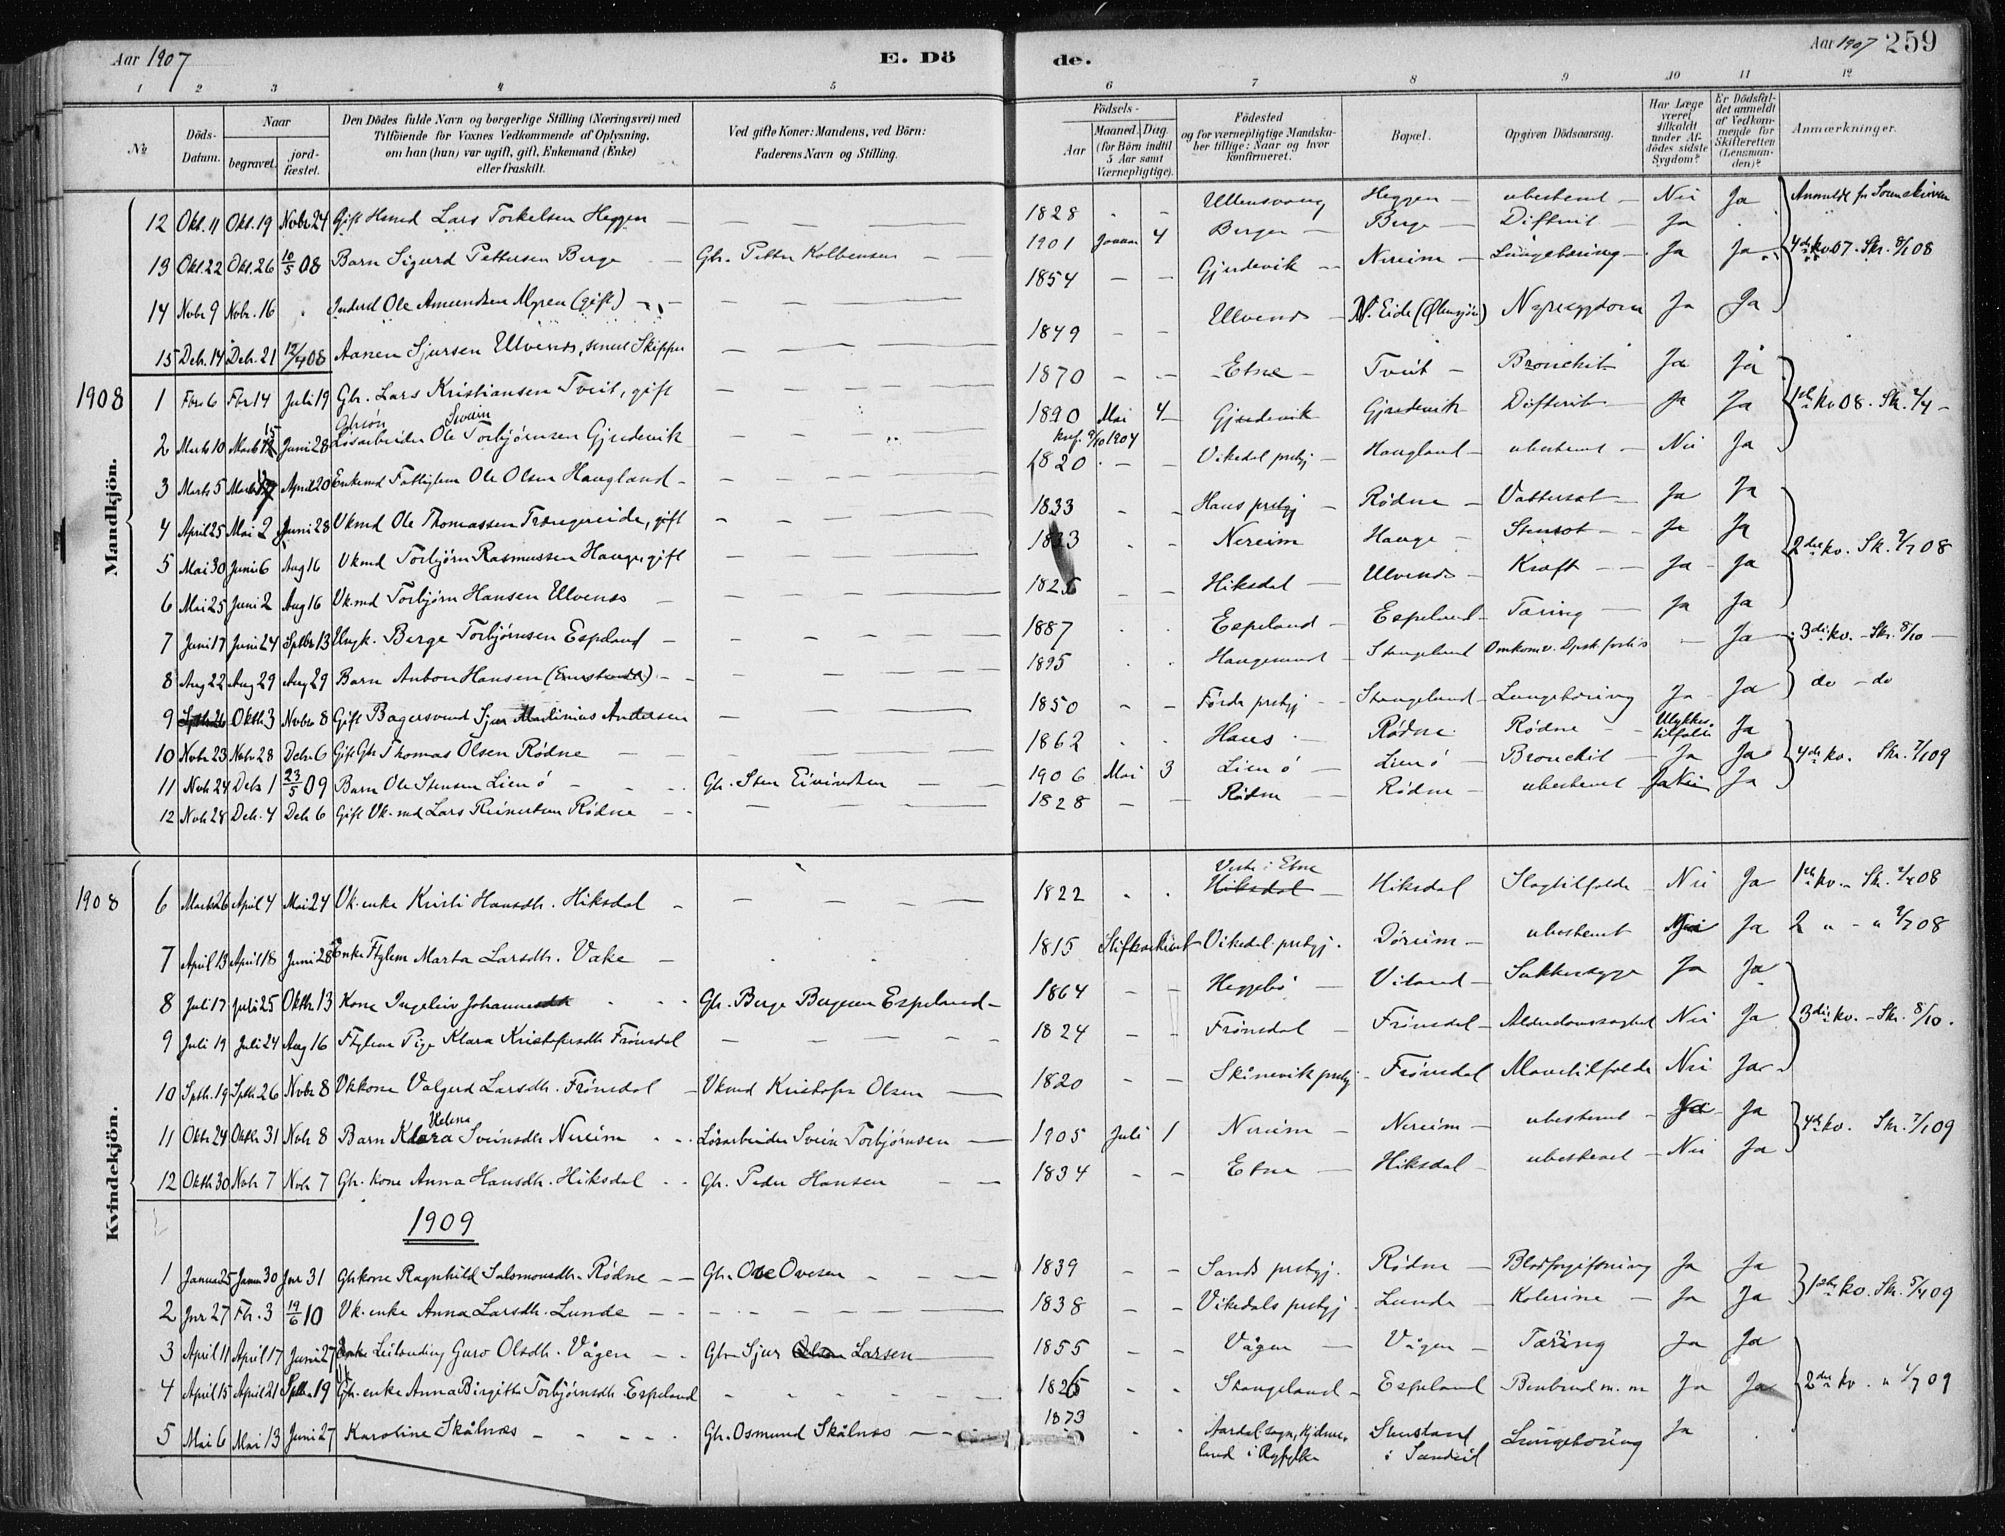 Aar 1907 E. Dö de. Aar 1907 259
1 2 3 4 5 6 7 8 9 10 11 12
№ Döds-Datum. Naar begravet. jord-fæstet. Den Dödes fulde Navn og borgerlige Stilling (Næringsvei) med Tilföiende for Voxnes Vedkommende af Oplysning, om han (hun) var ugift, gift, Enkemand (Enke) eller fraskilt. Ved gifte Koner: Mandens, ved Börn: Faderens Navn og Stilling. Födsels- Aar Maaned. Dag (for Börn indtil 5 Aar samt Værnepligtige). Födested og for værnepligtige Mandskaber tillige: Naar og hvor konfirmeret. Bopæl. Opgiven Dödsaarsag. Har Læge været tilkaldt under Afdödes sidste Sygdom? Er Dödsfaldet anmeldt af Vedkommende for Skifteretten (Lensmanden)? Anmærkninger.
Mandkjön.
12 Okt. 11 Okt. 19 Novbr 24 Gift Hsmd Lars Torkelsen Heggen 1828 Ullensvang Heggen ubestemt Nei Ja
13 Okt. 22 Okt. 26 10/5 08 Barn Sigurd Pettersen Berge Gbr. Petter Kolbensen 1901 Januar 4 Berge Berge Difterit Ja
14 Nobr 9 Nobr. 16 Inderst Ole Amundsen Myren (gift) 1854 Gjerdevik Nereim Lungebetændelse Ja Ja 4de kv 07. Skr. 8/1 08
15 Deb. 14 Deb. 21 12/4 08 Aanen Sjursen Ulvenes, Skipper 1849 Ulvenes N. Eide (Ølensjøen) Nyresygdom Ja Ja
1908
1 Fbr. 6 Fbr 14 Juli 19 Gbr. Lars Kristiansen Tveit, gift 1870 Etne Tveit Bronchit Ja Ja
2 Marts 10 Marts 15 Juni 28 Gbrsøn Løsarbeider Ole Svein Torbjørnsen Gjerdevik 1890 Mai 4 knf. 2/10 1904 Gjerdevik Gjerdevik Difterit Ja Ja 1ste kv 08. Skr. 2/4
3 Marts 5 April 20 Enkemd Fattiglem Ole Olsen Haugland 1820 Vikedal prstgj Haugland ubestemt Nei Ja
4 April 25 Mai 2 Juni 28 Vkmd Ole Thomassen Trængereide, gift 1833 Haus prstgj Rødne Vattersot Ja Ja
5 Mai 30 Juni 6 Aug 16 Vkmd Torbjørn Rasmussen Hauge, gift 1833 Nereim Hauge Stensot Ja Ja 2det kv. Skr. 2/7 08
6 Mai 25 Juni 2 Aug 16 Vk.md Torbjørn Hansen Ulvenes 1825 Hiksdal Ulvenes Kræft Ja Ja
7 Juni 17 Juni 24 Septbr 13 Ungk. Berge Torbjørnsen Espeland 1887 Espeland Espeland Tæring Ja Ja
8 Aug 22 Aug 29 Aug 29 Barn Anton Hansen 1895 Haugesund Stangeland Omkom v. Ja 3die kv. - Skr. 8/10
9 Septb. 26 Oktb 3 Novbr 8 Gift Bagersvend Sjur Martinius Andersen 1850 Førde prstgj Stangeland Lungebetæring Ja Ja do - do
10 Novbr. 23 Nobr 28 Debr. 6 Gift Gbr Thomas Olsen Rødne 1862 Haus Rødne Rødne Ulykkestilfælde Ja
11 Nobr 24 Debr 1 23/5 09 Barn Ole Stensen Lien ó Gbr. Sten Eivindsen 1906 Mai 3 Lien ó Lien ó Bronchit Ja Ja 4de kv. Skr. 7/1 09
12 Nobr 28 Deb. 4 Deb 6 Gift Vk.md Lars Reinertsen Rødne 1828 Rødne Rødne ubestemt Ja Nei Ja
Kvindekjön.
1908
6 Marts 26 April 4 Mai 24 Vk.enke Kristi Hansdtr. Hiksdal 1822 i Etne Hiksdal Hiksdal Slagtilfælde Nei Ja 1ste kv. - Skr. 2/4 08
7 April 13 April 18 Juni 28 Enke Ftglem Marta Larsdtr. Vake 1815 Vikedal prstgj. Døreim ubestemt Nei Ja 2 " - " 2/7 08
8 Juli 17 Juli 25 Oktb 13 Kone Ingeleiv Johannesdtr Gbr. Berge Bergesen Espeland 1864 Heggebø Viland Sukkersyge Ja Ja
9 Juli 19 Juli 24 Aug 16 Ftglem Pige Klara Kristofersdtr Frønsdal 1824 Frønsdal Frønsdal Alderdomssvaghed Nei Ja 3die kv. - Skr. 8/10.
10 Septb. 19 Septb 26 Nobr 8 Vkkone Valgerd Larsdtr. Frønsdal Vkmd Kristofer Olsen 1820 Skånevik prstgj Frønsdal Mavetilfælde Nei Ja
11 Oktb 24 Oktb 31 Novb 8 Barn Klara Helena Sveinsdtr Nereim Løsarbeider Svein Torbjørnsen 1905 Juli 1 Nereim Nereim ubestemt Ja Ja 4de kv. Skr. 7/1 09
12 Oktb 30 Novb 7 Novb 7 Gbr. kone Anna Hansdtr. Hiksdal Gbr. Peder Hansen 1834 Etne Hiksdal ubestemt Nei Ja
1909
1 Januar 25 Januar 30 Jnr 31 Gbrkone Ragnhild Salomonsdtr. Rødne Gbr. Ove Ovesen 1839 Sands prstgj. Rødne Blodforgiftning Ja Ja
2 Jnr 27 Fbr. 3 19/6 10 Vk.enke Anna Larsdtr. Lunde 1838 Vikedals prstgj Lunde Kolerine Ja Ja 1ste kv. Skr. 5/4 09
3 April 11 April 17 Juni 27 Leilending Guro Olsdtr. Vågen Gbr Sjur Larsen 1855 Vågen Vågen Tæring Ja Ja
4 April 15 April 21 Septbr 19 Gbr. enke Anna Birgitta Torbjørnsdtr Espeland 1826 Stangeland Espeland Benbrud m. m Ja Ja 2det kv. " 1/7 09
5 Mai 6 Mai 13 Juni 27 Karoline Skålnæs Gbr. Osmund Skålnæs 1873 Aardal sogn, Hjelmeland i Ryfylke Stensland i Sandeid Lungebetæring Ja